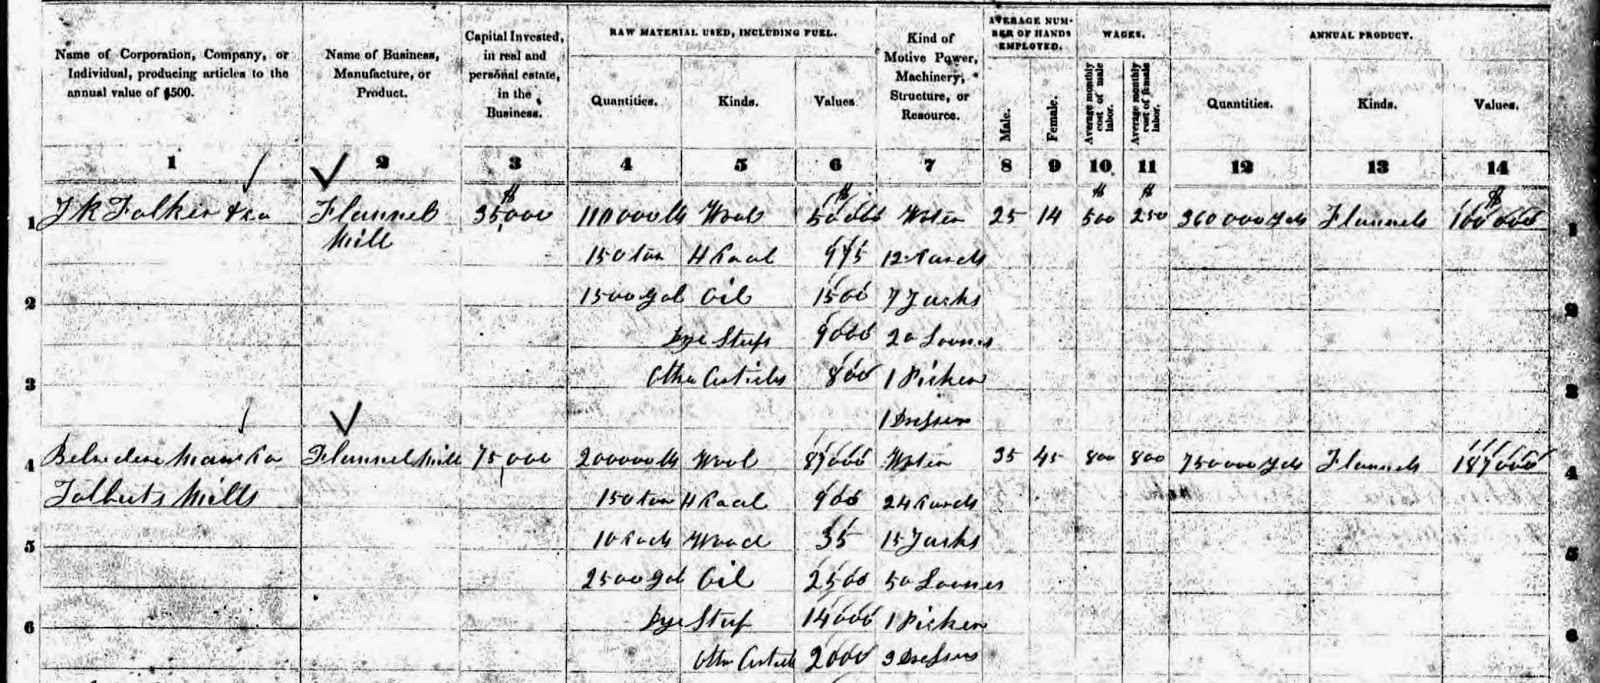 Name of Corporation, Company, or Individual, producing articles to the annual value of $500.
Name of Business, Manufacture, or Product.
Capital Invested, in real and personal estate, in the Business.
RAW MATERIAL USED, INCLUDING FUEL.
Quantities. Kinds. Values.
Kind of Motive Power, Machinery, Structure, or Resource.
AVERAGE NUMBER OF HANDS EMPLOYED.
Male. Female.
WAGES.
Average monthly cost of male labor. Average monthly cost of female labor.
ANNUAL PRODUCT.
Quantities. Kinds. Values.
1 2 3 4 5 6 7 8 9 10 11 12 13 14
1 Flannel 35,000 110000 lb Wool 50000 Water 25 14 500 250 360000 Yds Flannels 100000 1
Mill
150 ton H Coal 975 12 Cards
2 1500 gal Oil 1500 7 Jacks 2
Dye Stufs 9000 20 Looms
3 Other Articles 800 1 Picker 3
1 Dresser
4 Belvidere Man Co Flannel Mill 75,000 200000 lb Wool 87000 Water 35 45 800 800 750000 Yds Flannels 187000 4
Talbuts Mills 150 ton H Coal 900 24 Cards
5 10 Cords Wood 35 15 Jacks 5
2500 gal Oil 2500 50 Looms
6 Dye Stuf 14000 1 Picker 6
Other Article 2000 3 Dressers